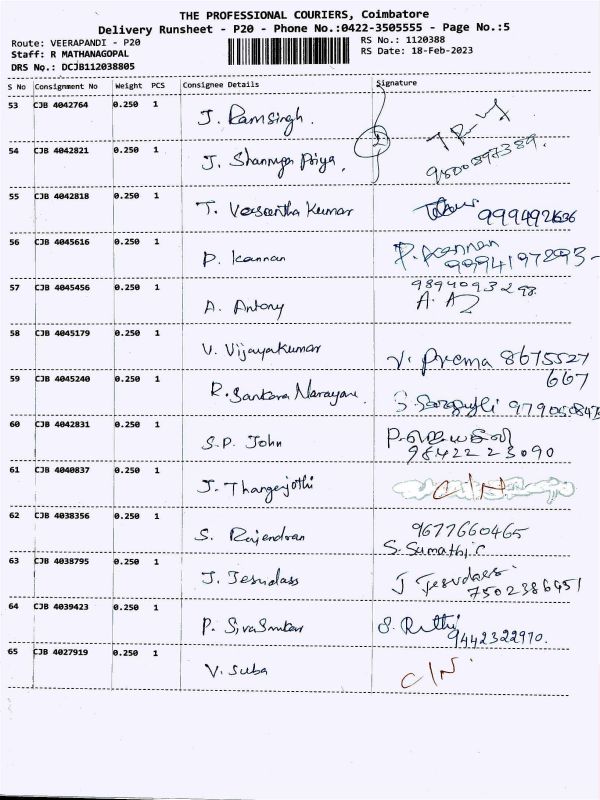 THE PROFESSIONAL COURIERS, Coimbatore
Delivery Runsheet - P20 - Phone No.:0422-3505555 - Page No.:5
Route: VEERAPANDI - P20
Staff: R MATHANAGOPAL
DRS No.: DCJB112038805
RS No.: 1120388
RS Date: 18-Feb-2023
S No Consignment No Weight PCS Consignee Details Signature
53 CJB 4042764 0.250 1 J. Ramsingh.
54 CJB 4042821 0.250 1 J. Shanmuga Priya.
55 CJB 4042818 0.250 1 T. Vasantha Kumar
56 CJB 4045616 0.250 1 P. Kannan P. Kannan
9994197293
57 CJB 4045456 0.250 1 A. Antony 9894093298
58 CJB 4045179 0.250 1 V. Vijayakumar V. Prema 8675527
667
59 CJB 4045240 0.250 1 R. Sankara Narayan.
60 CJB 4042831 0.250 1 S.P. John
9842223090
61 CJB 4040837 0.250 1 J. Thangajothi C/N
62 CJB 4038356 0.250 1 S. Rajendran 9677660465
S. Sumathi.
63 CJB 4038795 0.250 1 J. Jesudass J Jesudass
7502386451
64 CJB 4039423 0.250 1 P. Sivasankar
9442322970.
65 CJB 4027919 0.250 1 V. Suba C/N.